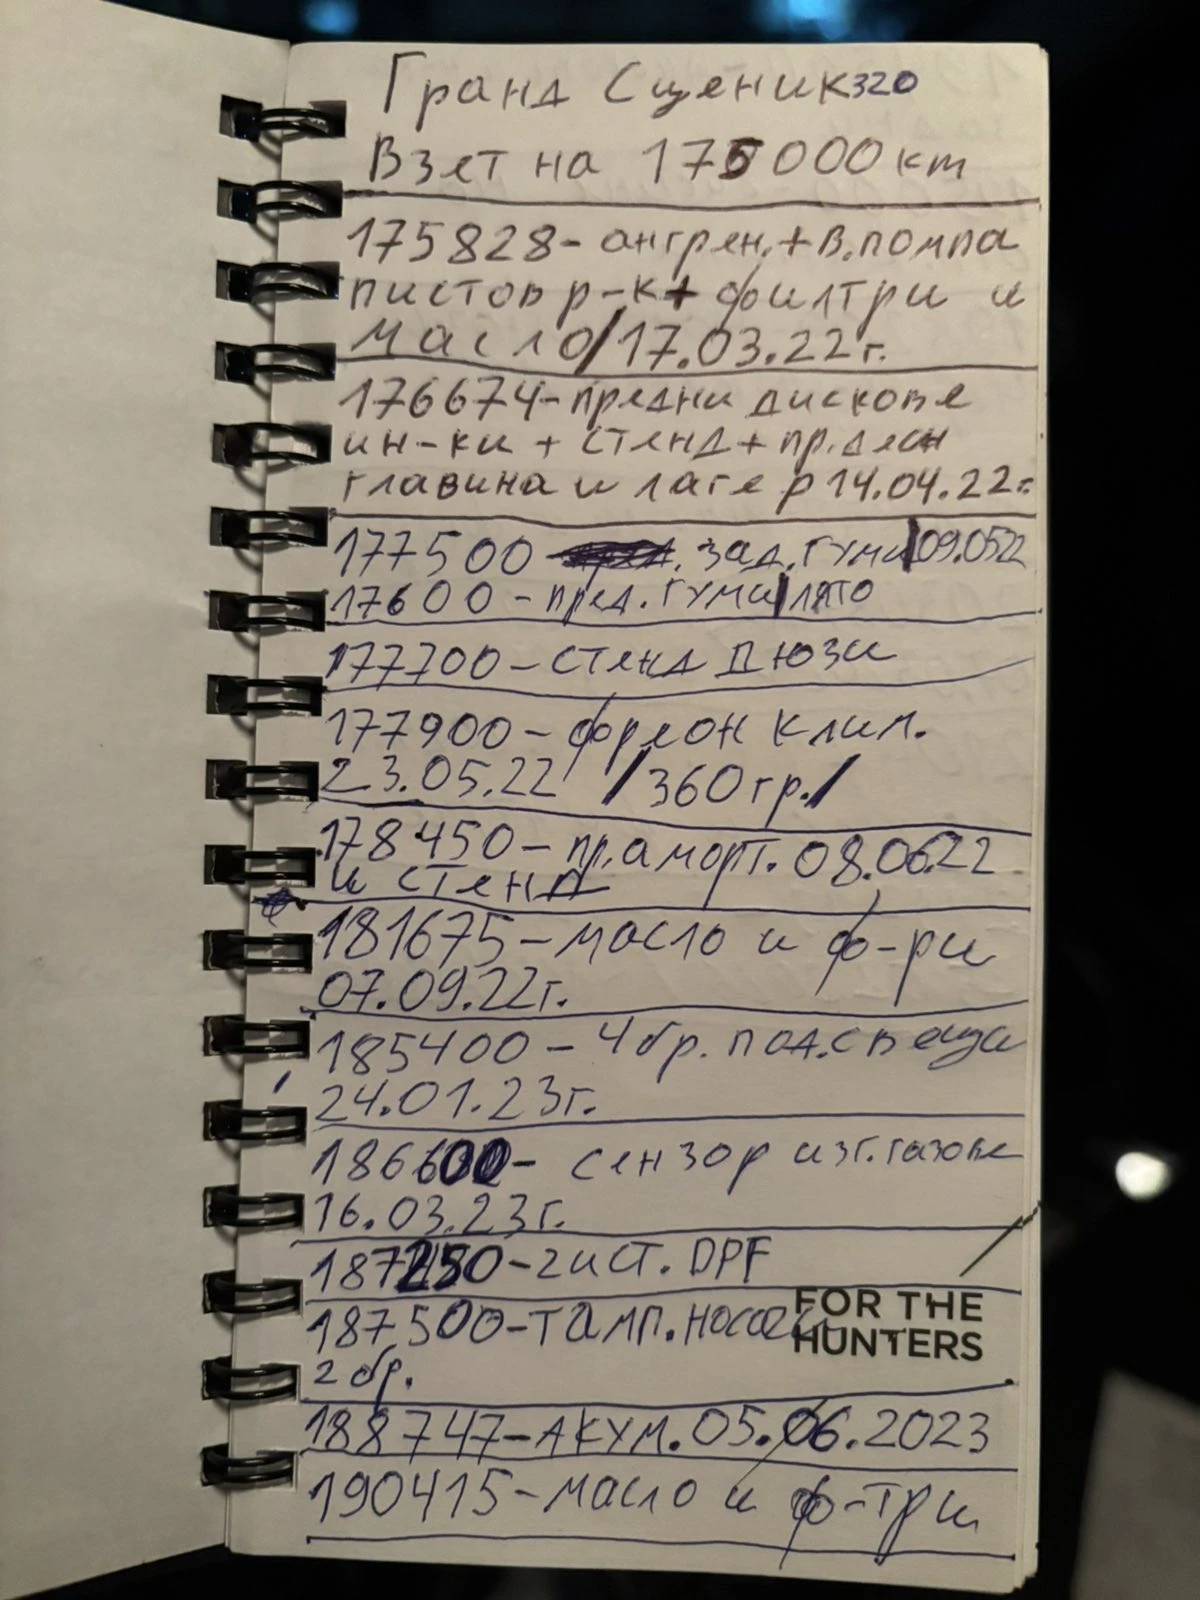 Гранд Сценик 320
Взет на 175000 км
175828- ангрен.+в.помпа
пистов р-к + филтри и
масло/17.03.22г.
176674-предни дискове
ин-ки + стенд + пр. десн
главина и лагер 14.04.22г.
177500 зад. гуми|09.0522
17600 - пред. гуми|лято
177700 - стенд дюзи
177900 - фреон клим.
23.05.22 /360гр./
178450 - пр. аморт. 08.06.22
и стенд
181675 - масло и ф-ри
07.09.22г.
185400 - 4бр. под.свещи
24.01.23г.
186600 - сензор изг.газове
16.03.23г.
187250 - чист. DPF
187500-тамп.
FOR THE
HUNTERS
2 бр.
188747-АКУМ. 05.06.2023
190415-масло и ф-три